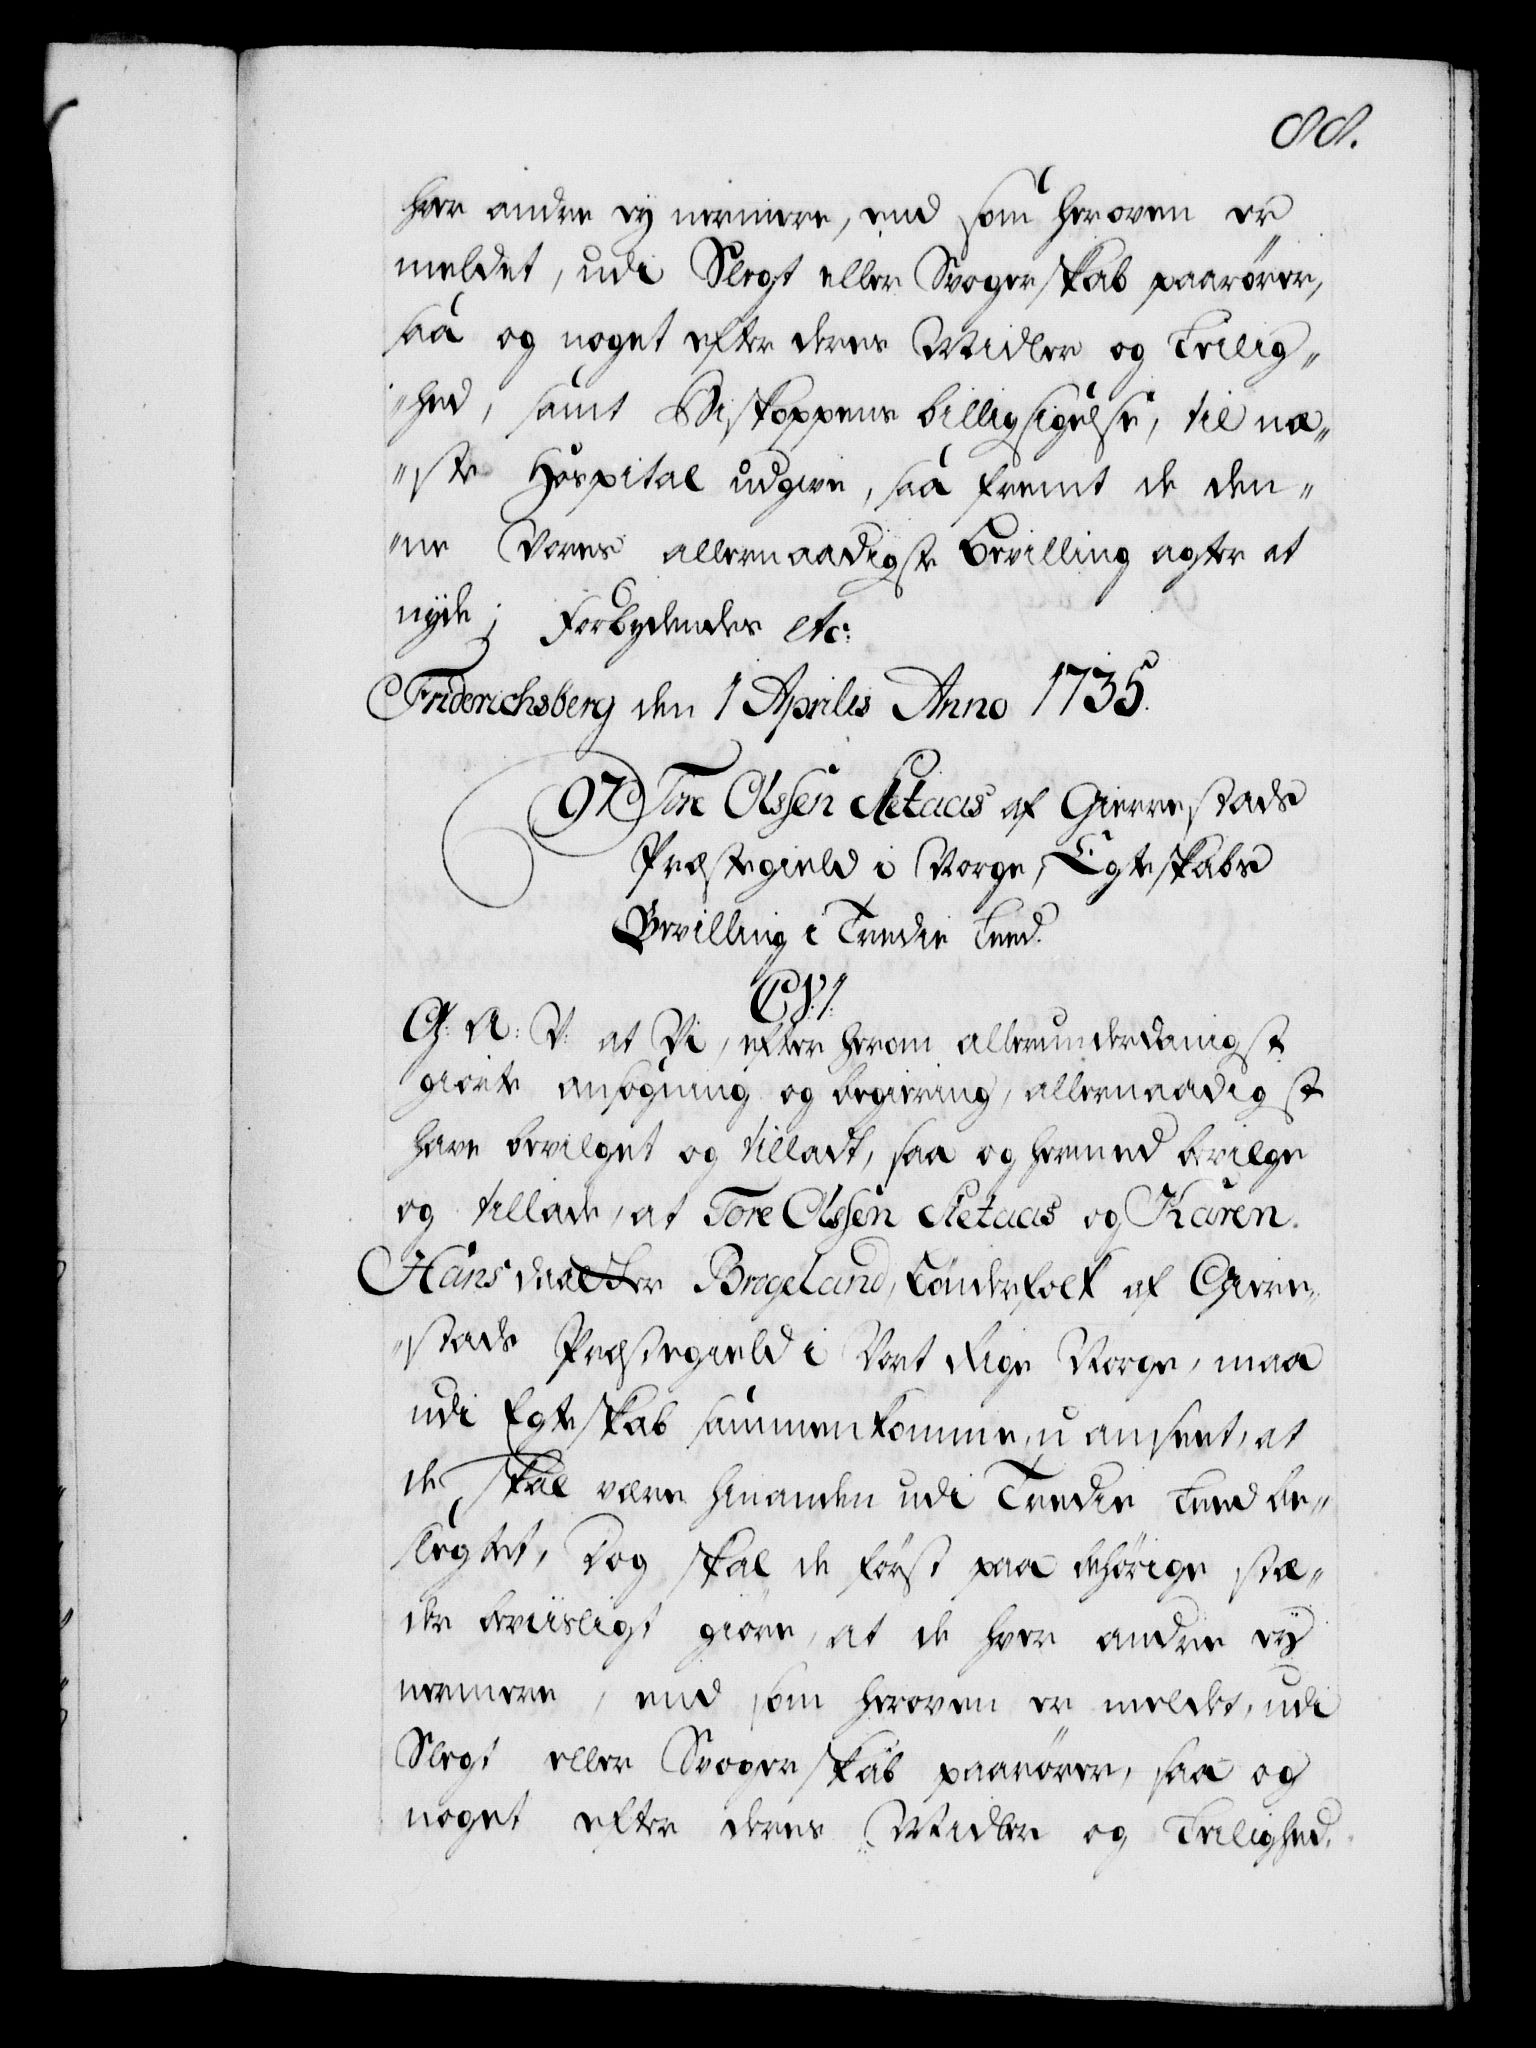 88.
hver andre ey nermere, end som her oven er
meldet, udi Slegt eller Svogerskab paarører,
saa og noget efter deres Midler og Leilig„
„hed, samt Biskoppens billigsigelse, til næ„
„ste Hospital udgive, saa fremt de den„
„ne Vores allernaadigste Bevilling agter at
nyde; Forbydendes etc:
Friderichsberg den 1 Aprilis Anno 1735.
97 Tore Olssen Sletaas af Gierrestads
Præstegield i Norge, Egteskabs
Bevilling i Tredie Leed.
C.VI.
G: A: V: at Vi, efter herom allerunderdanigst
giorte ansøgning og begiering, allernaadigst
have bevilget og tilladt, saa og hermed bevilge
og tillade, at Tore Olssen Sletaas og Karen
Hans daatter Brogeland, bønderfolk af Gierre„
„stads Præstegield i Vort Rige Norge, maa
udi Egteskab sammenkomme, uanseet, at
de skal være hinanden udi Tredie Leed be„
slegtet, Dog skal de først paa behørige stæ„
der beviisligt giøre, at de hver andre ey
nermere, end som heroven er meldet, udi
Slegt eller Svogerskab paarører, saa og
noget efter deres Midler og Leilighed,